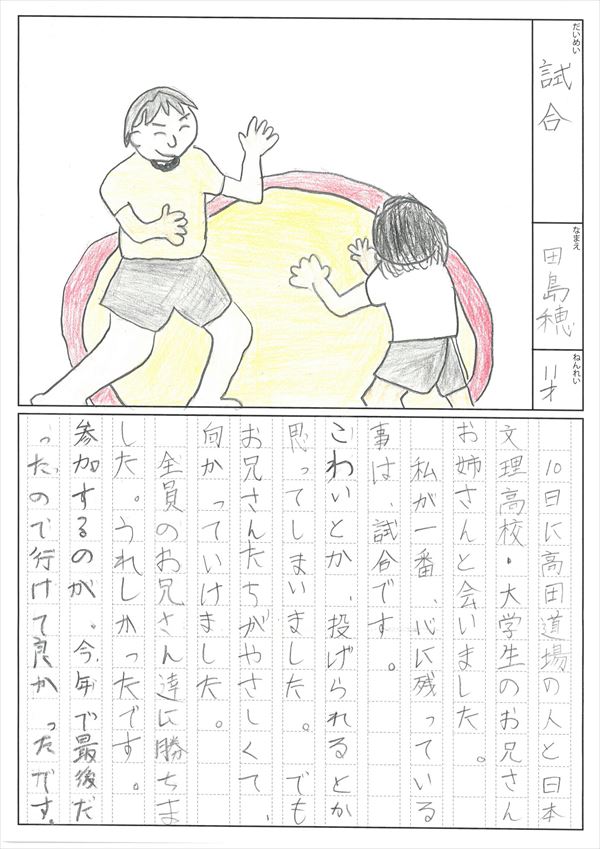 だいめい
試合
なまえ
田島穂
ねんれい
11才
10日に高田道場の人と日本
文理高校・大学生のお兄さん
お姉さんと会いました。
私が一番、心に残っている
事は、試合です。
こわいとか、投げられるとか
思ってしまいました。でも
お兄さんたちがやさしくて、
向かっていけました。
全員のお兄さん達に勝ちま
した。うれしかったです。
参加するのが。今年で最後だ
ったので行けて良かったです。